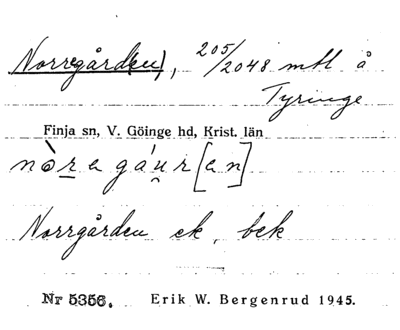 Norregård(en), 205/2048 mtl å
Tyringe
Finja sn, V. Göinge hd, Krist. län
nòregáur[en]
Norrgården ek, bek
Nr 5356. Erik W. Bergenrud 1945.